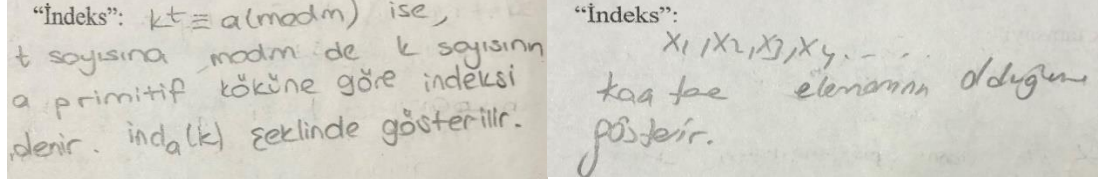 “İndeks”: kt ≡ a(modm) ise,
t sayısına modm de k sayısının
a primitif köküne göre indeksi
denir. indₐ(k) şeklinde gösterilir.
“İndeks”:
X₁, X₂, X₃, X₄, ... .
kaç tae elemanın olduğunu
gösterir.